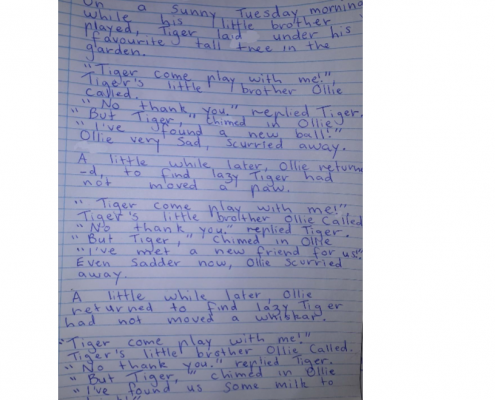 On a sunny Tuesday morning
while his little brother
played, Tiger laid under his
favourite tall tree in the
garden.
"Tiger come play with me!",
Tiger's little brother Ollie
called.
"No thank you." replied Tiger.
"But Tiger," chimed in Ollie
"I've found a new ball!"
Ollie very sad, scurried away.
A little while later, Ollie return
-d, to find lazy Tiger had
not moved a paw.
"Tiger come play with me!"
Tiger's little brother Ollie Called
"No thank you." replied Tiger.
"But Tiger," chimed in Ollie
"I've met a new friend for us!"
Even sadder now, Ollie scurried
away.
A little while later, Ollie
returned to find lazy Tiger
had not moved a whiskar.
"Tiger come play with me!"
Tiger's little brother Ollie Called.
"No thank you." replied Tiger.
"But Tiger," chimed in Ollie
"I've found us some milk to